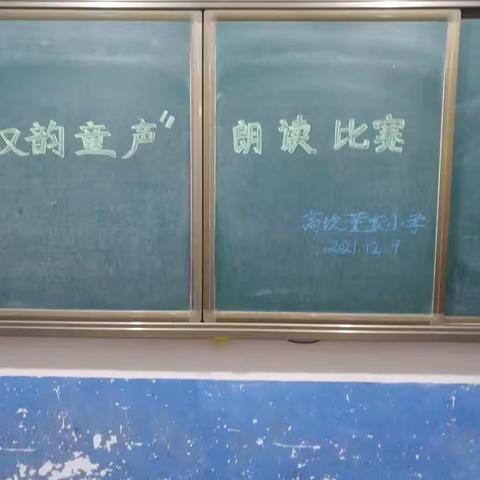 汉韵童声” 朗读比赛
高坎董家小学
2021.12.9